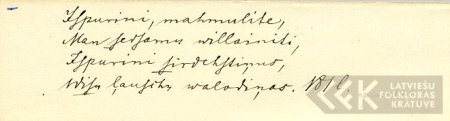 Ispurini, mahmulite,
Man sedsamu willainiti,
Ispurini sirdekstiņus,
Wisu ļauschu walodiņas. 1816.
LATVIEŠU
FOLKLORAS
KRĀTUVE